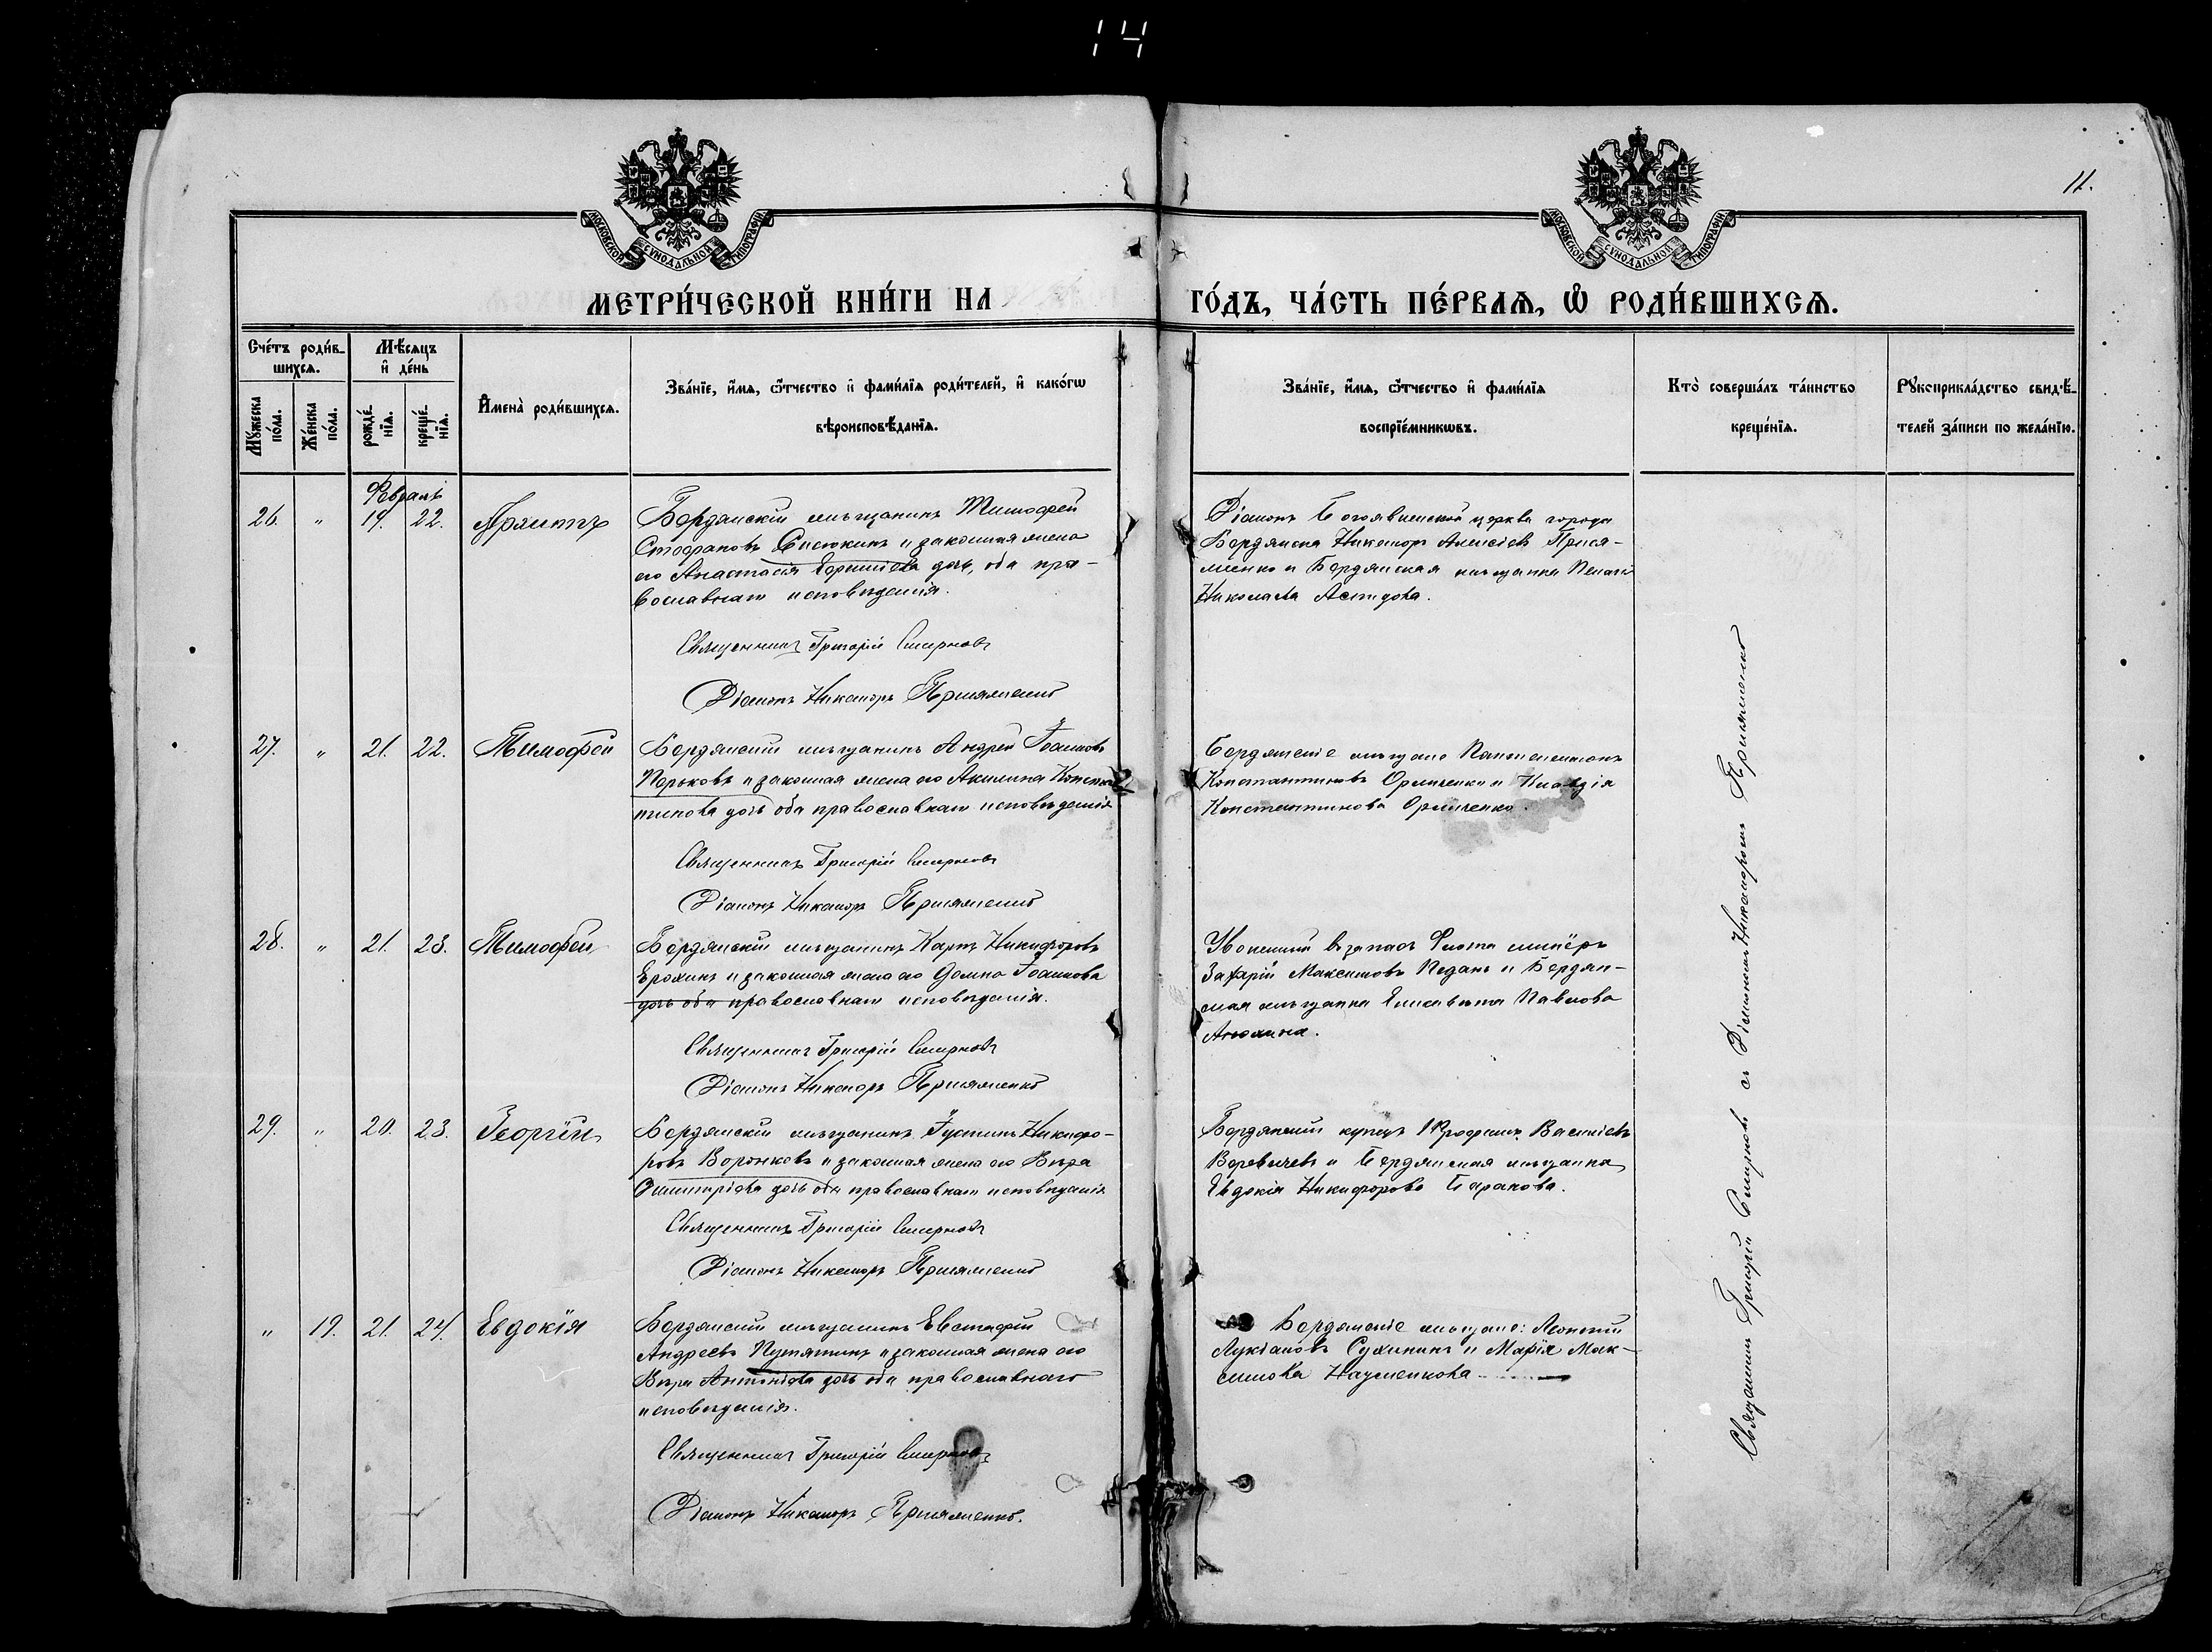 14
11.
МОСКОВСКОЙ СѴНОДАЛЬНОЙ ТИПОГРАФІИ
МОСКОВСКОЙ СѴНОДАЛЬНОЙ ТИПОГРАФІИ
МЕТРИ́ЧЕСКОЙ КНИ́ГИ НА ГО́ДЪ, ЧА́СТЬ ПЕ́РВАЯ, Ѽ РОДИ́ВШИХСЯ.
Сче́тъ роди́в-
шихся.
Мѣ́сяцъ
и҆ де́нь
Мꙋ́жеска по́ла.
Же́нска по́ла.
рожде́нїя.
креще́нїя.
И҆мена̀ роди́вшихся.
Зва́нїе, и҆́мя, ѻ҆́тчество и҆ фами́лїя роди́телей, и҆ како́гѡ
вѣроисповѣ́данїя.
Зва́нїе, и҆́мя, ѻ҆́тчество и҆ фами́лїя
воспрїе́мникѡвъ.
Кто̀ соверша́лъ та́инство
креще́нїя.
Рꙋкоприкла́дство свидѣ́-
телей за́писи по жела́нїю.
Февраль
26. " 19. 22.
Бердянскій мѣщанинъ Тимофей
Стефановъ и законная жена
его Анастасія дочь, оба пра-
вославнаго исповѣданія.
Священникъ Григорій Смирновъ
Діаконъ Никаноръ Присяженко
Діаконъ Богоявленской церкви города
Бердянска Никаноръ Алексіевъ Прися-
женко и Бердянская мѣщанка
Николаева
27. " 21. 22. Тимофей
Бердянскій мѣщанинъ Андрей Іоанновъ
и законная жена его Акилина Констан-
тинова дочь оба православнаго исповѣданія
Священникъ Григорій Смирновъ
Діаконъ Никаноръ Присяженко
Бердянскіе мѣщане Пантелеимонъ
Константиновъ и Клавдія
Константинова
28. " 21. 23. Тимофей
Бердянскій мѣщанинъ Карпъ Никифоровъ
Ерохинъ и законная жена его Домна Іоаннова
дочь оба православнаго исповѣданія.
Священникъ Григорій Смирновъ
Діаконъ Никаноръ Присяженко
Уволенный въ запасъ флота минёръ
Захарій Максимовъ Педанъ и Бердян-
ская мѣщанка Елисавета Павлова
29. " 20. 23. Георгій
Бердянскій мѣщанинъ Іустинъ Никифо-
ровъ Воронковъ и законная жена его Вѣра
Димитріева дочь оба православнаго исповѣданія
Священникъ Григорій Смирновъ
Діаконъ Никаноръ Присяженко
Бердянскій купецъ Василіевъ
и Бердянская мѣщанка
Евдокія Никифорова
" 19. 21. 24. Евдокія
Бердянскій мѣщанинъ Евстафій
Андреевъ Путятинъ и законная жена его
Вѣра Антоніева дочь оба православнаго
исповѣданія.
Священникъ Григорій Смирновъ
Діаконъ Никаноръ Присяженко.
Бердянскіе мѣщане: Леонтій
Лукіановъ Сухининъ и Марія Мак-
симова Науменкова
Священникъ Григорій Смирновъ съ Діакономъ Никаноромъ Присяженко